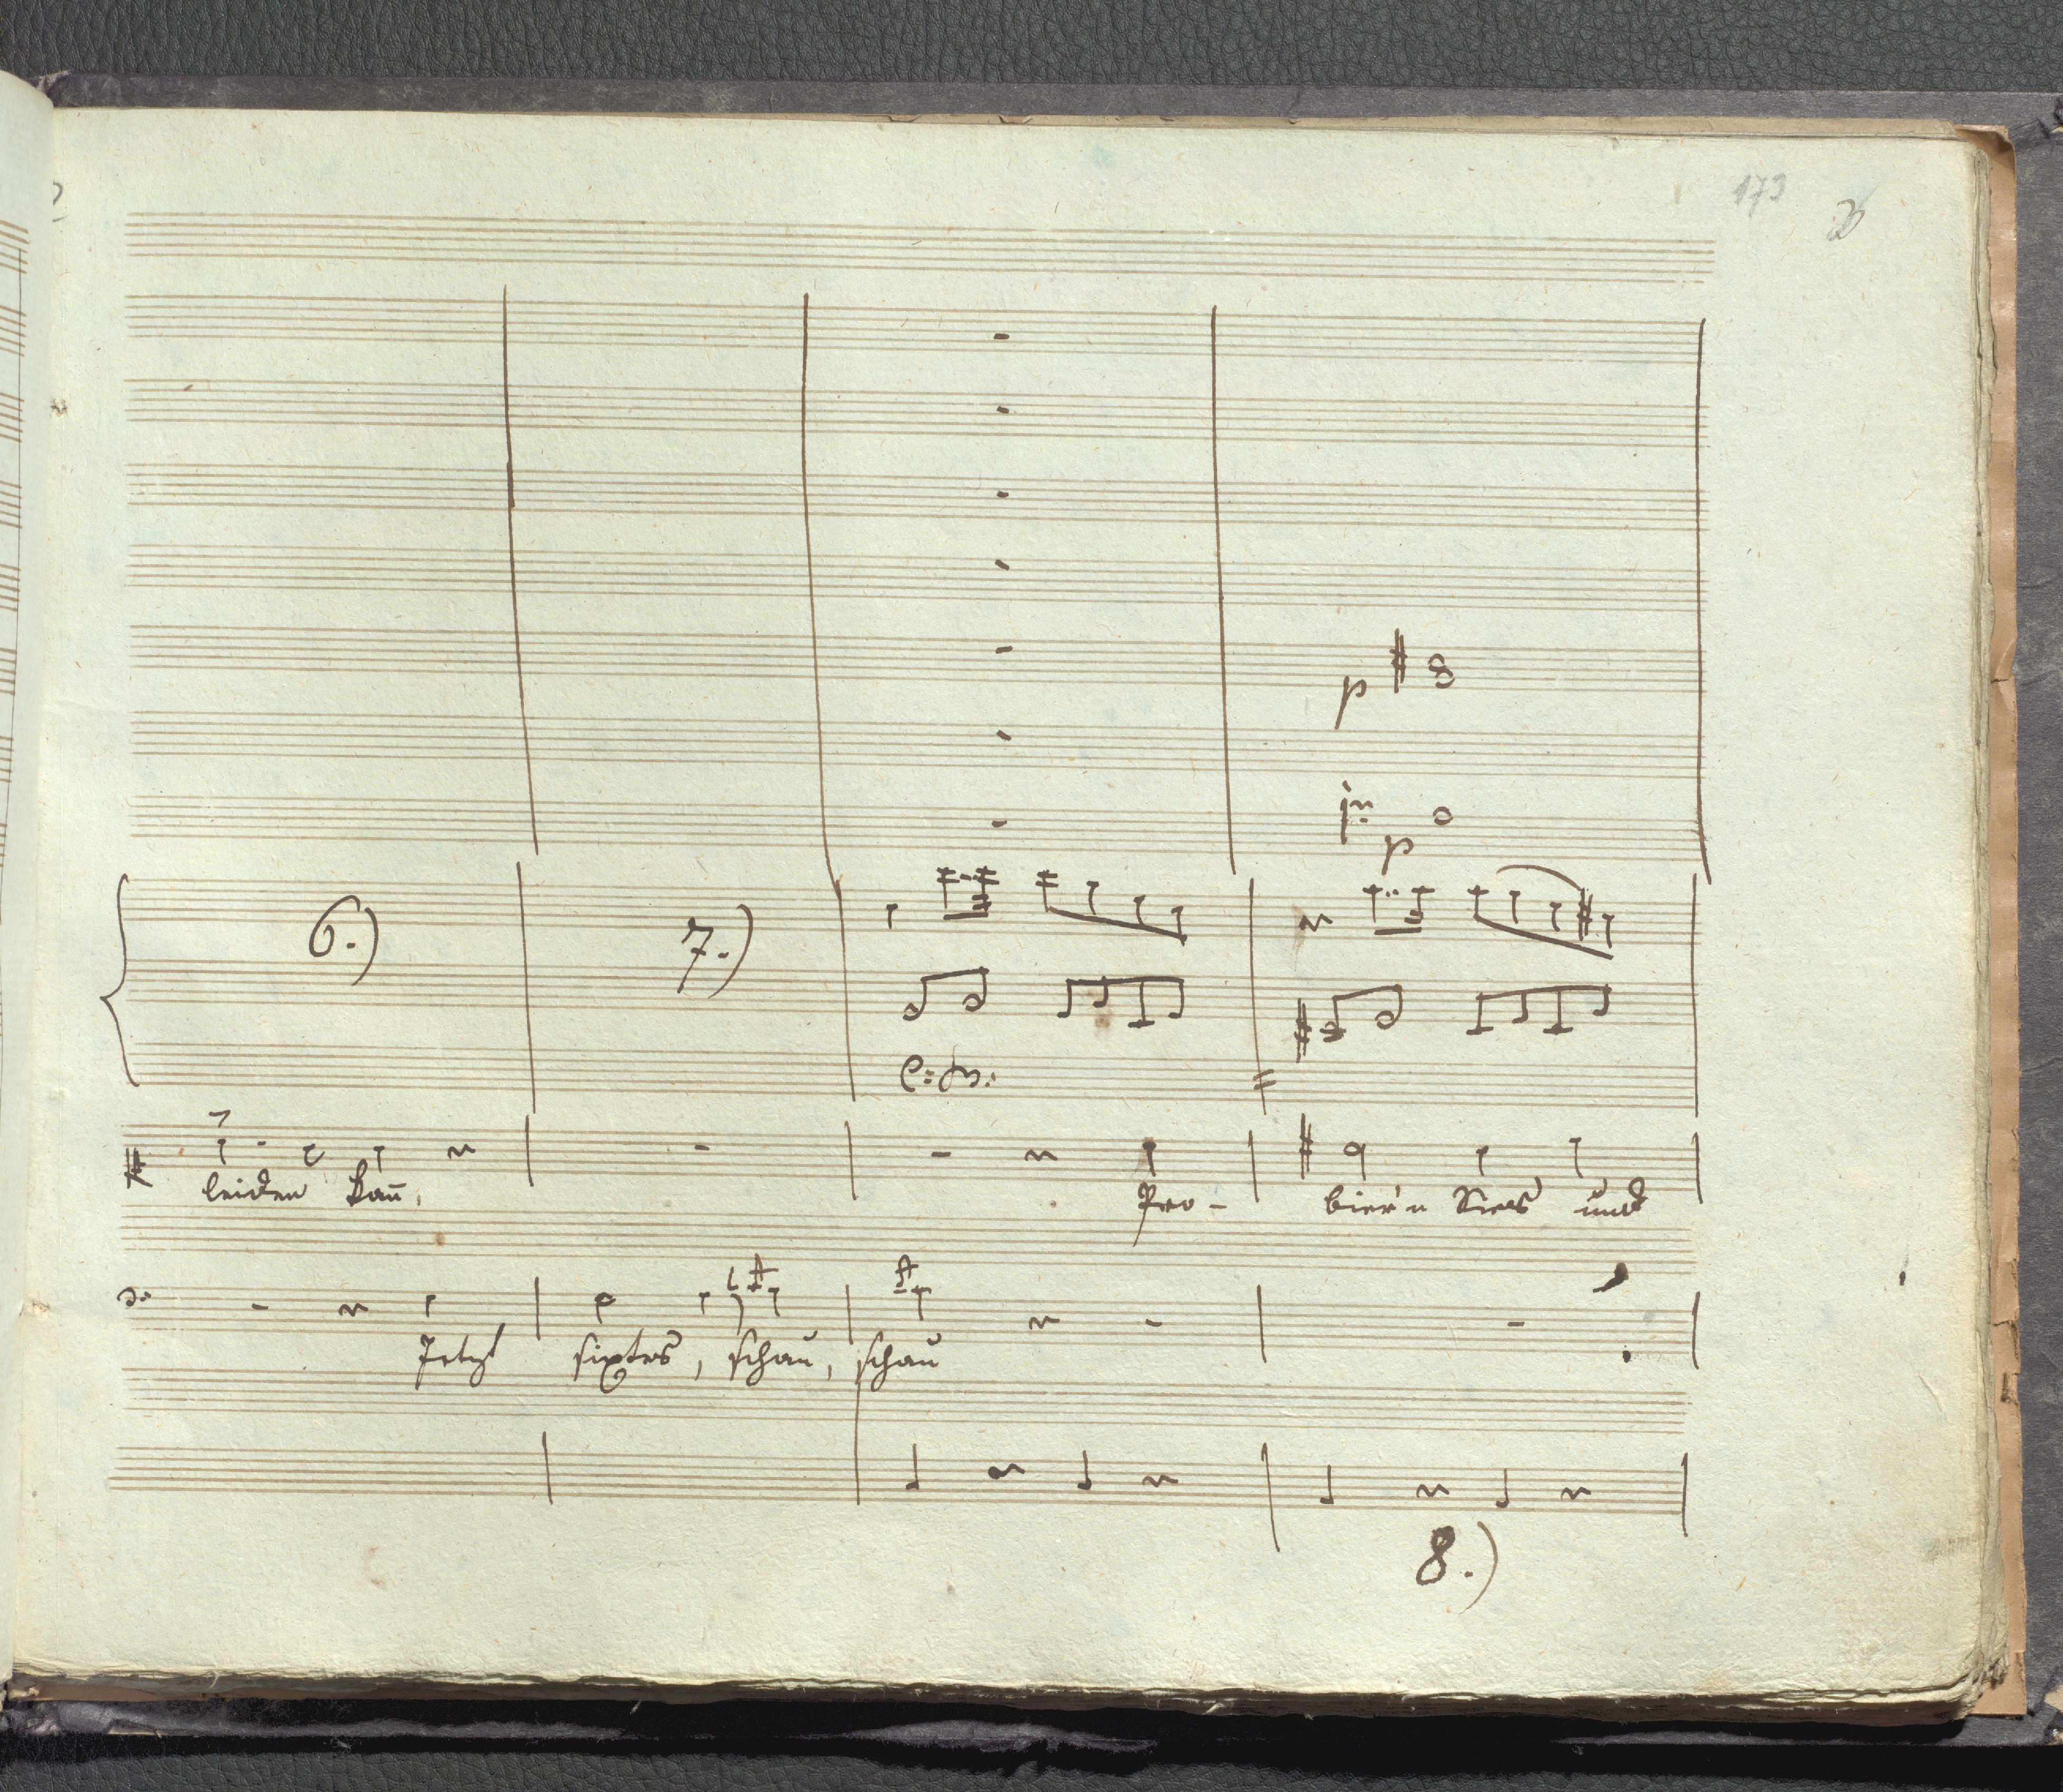 173
p
p
6.) 7.)
leiden kann, Pro- bier'n Sie's und
Jetzt sixtes, schau, schau
8.)